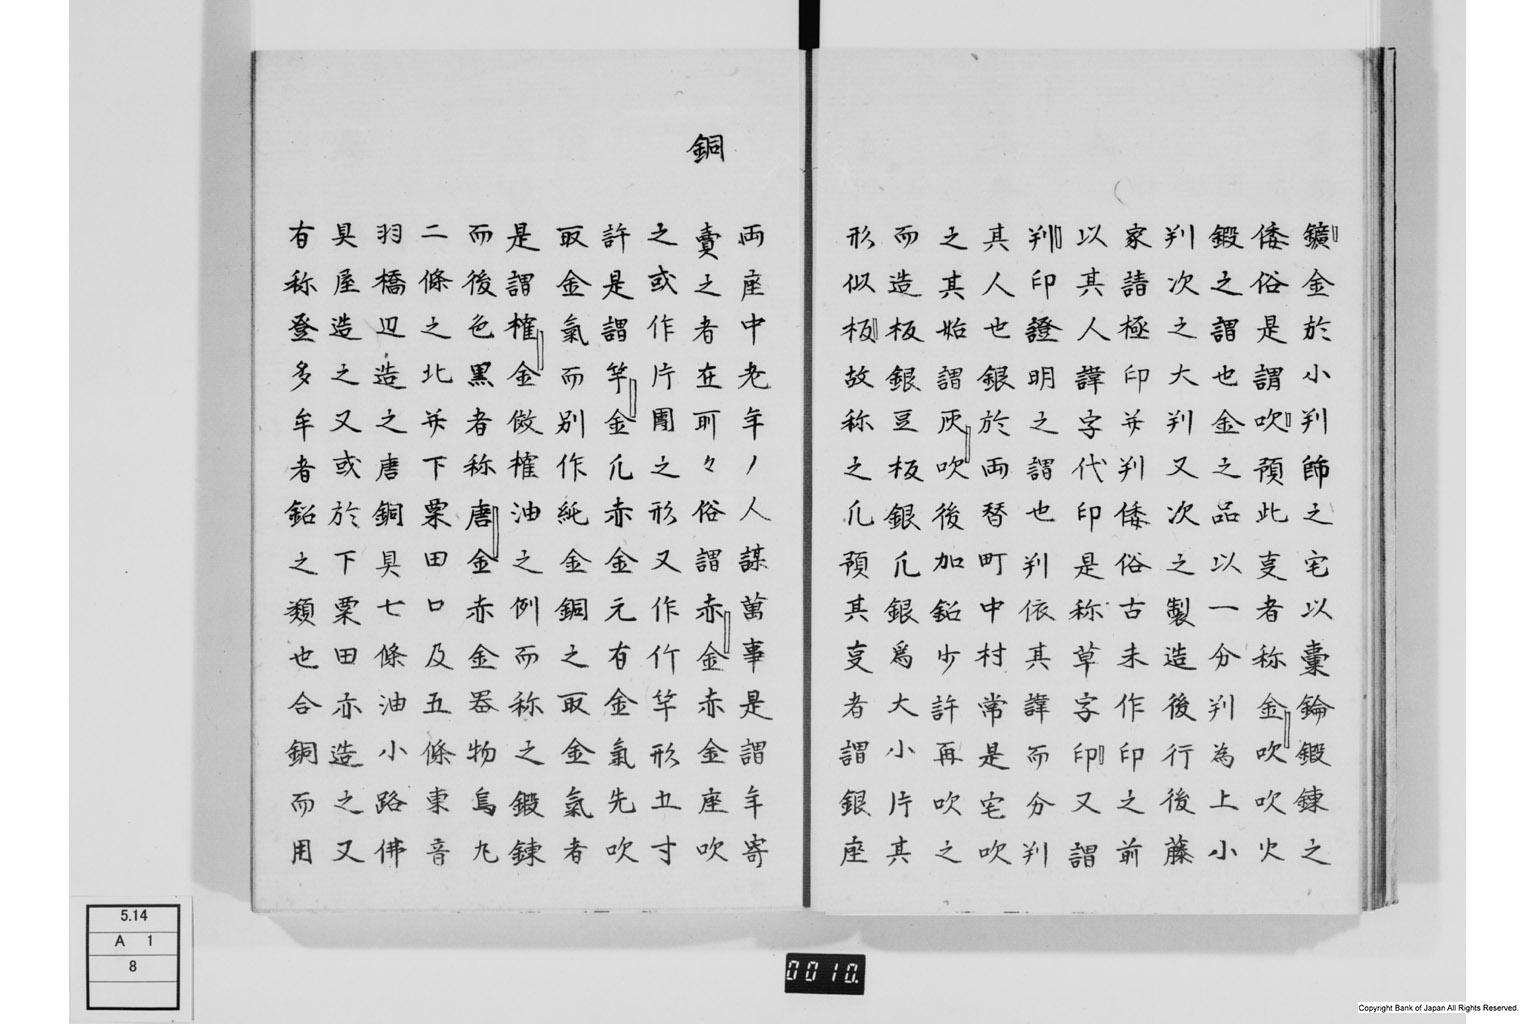 鑛金於小判師之宅以橐錀鍛錬之
倭俗是謂吹預此叓者称金吹吹火
鍛之謂也金之品以一分判為上小
判次之大判又次之製造後行後藤
家請極印并判倭俗古未作印之前
以其人諱字代印是称草字印又謂
判印證明之謂也判依其諱而分判
其人也銀於両替町中村常是宅吹
之其始謂灰吹後加鈆少許再吹之
而造板銀豆板銀凢銀爲大小片其
形似板故称之凢預其叓者謂銀座
両座中老年ノ人謀萬事是謂年寄
銅
賣之者在所々俗謂赤金赤金座吹
之或作片團之形又作竹竿形五寸
許是謂竿金凢赤金元有金氣先吹
取金氣而別作純金銅之取金氣者
是謂榷金傚榷油之例而称之鍛錬
而後色黒者称唐金赤金器物烏丸
二條之北并下粟田口及五條東音
羽橋辺造之唐銅具七條油小路佛
具屋造之又或於下粟田亦造之又
有称登多牟者鈆之類也合銅而用
5.14
A 1
8
0010.
Copyright Bank of Japan All Rights Reserved.